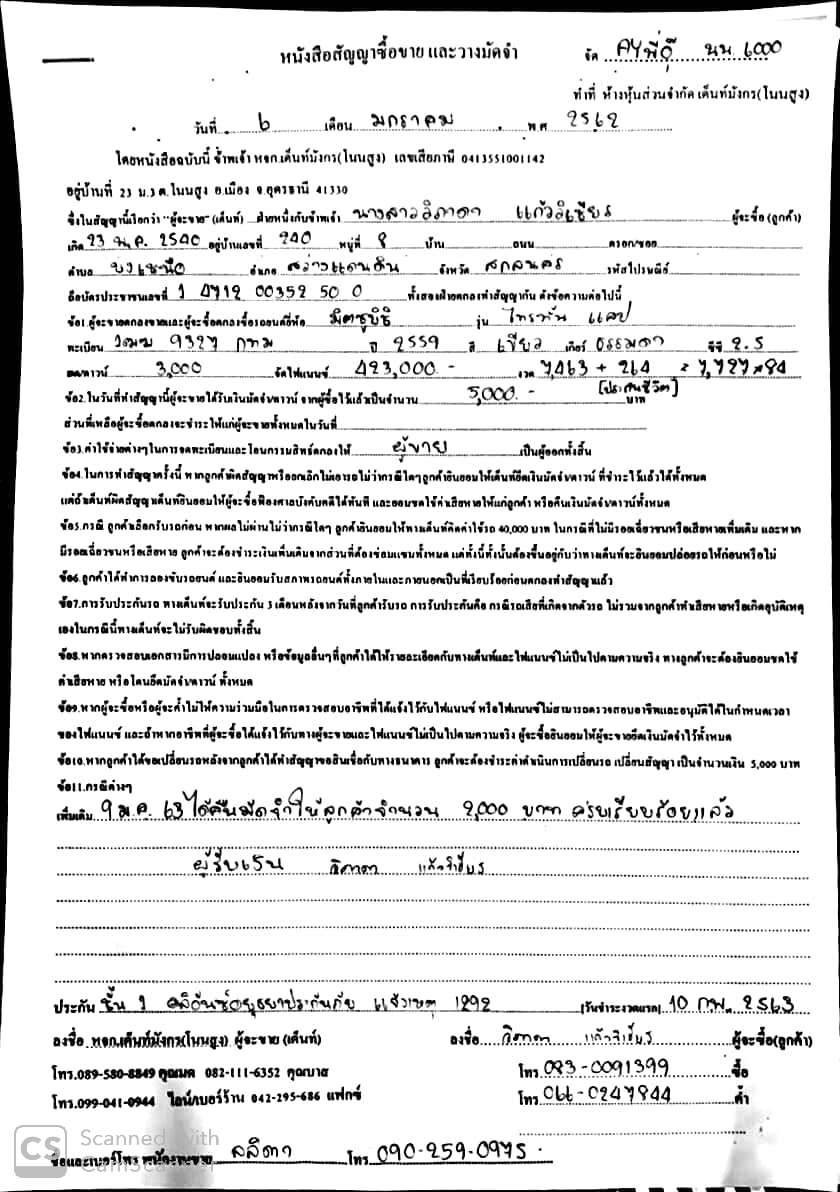 หนังสือสัญญาซื้อขาย และวางมัดจำ
จัด AYพีดี นน. 6000
ทำที่ ห้างหุ้นส่วนจำกัด เต็นท์มังกร(โนนสูง)
วันที่ 6 เดือน มกราคม พ.ศ 2562
โดยหนังสือฉบับนี้ ข้าพเจ้า หจก.เต็นท์มังกร(โนนสูง) เลขเสียภาษี 0413551001142
อยู่บ้านที่ 23 ม.3 ต.โนนสูง อ.เมือง จ.อุดรธานี 41330
ซึ่งในสัญญานี้เรียกว่า "ผู้จะขาย"(เต็นท์) ฝ่ายหนึ่งกับข้าพเจ้า นางสาววิภาดา แก้ววิเชียร ผู้จะซื้อ (ลูกค้า)
เกิด 23 พ.ค. 2540 อยู่บ้านเลขที่ 240 หมู่ที่ 8 บ้าน ถนน ตรอก/ซอย
ตำบล บงเหนือ อำเภอ สว่างแดนดิน จังหวัด สกลนคร รหัสไปรษณีย์
ถือบัตรประชาชนเลขที่ 1 4712 00352 50 0 ทั้งสองฝ่ายตกลงทำสัญญากัน ดังข้อความต่อไปนี้
ข้อ1.ผู้จะขายตกลงขายและผู้จะซื้อตกลงซื้อรถยนต์ยี่ห้อ มิตซูบิชิ รุ่น ไทรทัน แคป
ทะเบียน 1ฒฆ 9327 กทม ปี 2559 สี เขียว เกียร์ ธรรมดา ซีซี 2.5
สด/ดาวน์ 3,000 จัดไฟแนนซ์ 423,000.- งวด 7,463 + 264 = 7,727×84
ข้อ2.ในวันที่ทำสัญญานี้ผู้จะขายได้รับเงินมัดจำ/ดาวน์ จากผู้ซื้อไว้แล้วเป็นจำนวน 5,000.- (ประกันชีวิต) บาท
ส่วนที่เหลือผู้จะซื้อตกลงจะชำระให้แก่ผู้จะขายทั้งหมดในวันที่
ข้อ3.ค่าใช้จ่ายต่างๆในการจดทะเบียนและโอนกรรมสิทธิ์ตกลงให้ ผู้ขาย เป็นผู้ออกทั้งสิ้น
ข้อ4.ในการทำสัญญาครั้งนี้ หากลูกค้าผิดสัญญาหรือยกเลิกไม่เอารถไม่ว่ากรณีใดๆลูกค้ายินยอมให้เต็นท์ยึดเงินมัดจำ/ดาวน์ ที่ชำระไว้แล้วได้ทั้งหมด
แต่ถ้าเต็นท์ผิดสัญญาเต็นท์ยินยอมให้ผู้จะซื้อฟ้องศาลบังคับคดีได้ทันที และยอมชดใช้ค่าเสียหายให้แก่ลูกค้า หรือคืนเงินมัดจำ/ดาวน์ทั้งหมด
ข้อ5.กรณี ลูกค้าเลือกรับรถก่อน หากผลไม่ผ่านไม่ว่ากรณีใดๆ ลูกค้ายินยอมให้ทางเต็นท์คิดค่าใช้รถ 40,000 บาท ในกรณีที่ไม่มีรอยเฉี่ยวชนหรือเสียหายเพิ่มเติม และหาก
มีรอยเฉี่ยวชนหรือเสียหาย ลูกค้าจะต้องชำระเงินเพิ่มเติมจากส่วนที่ต้องซ่อมแซมทั้งหมด แต่ทั้งนี้ทั้งนั้นต้องขึ้นอยู่กับว่าทางเต็นท์จะยินยอมปล่อยรถให้ก่อนหรือไม่
ข้อ6.ลูกค้าได้ทำการลองขับรถยนต์ และยินยอมรับสภาพรถยนต์ทั้งภายในและภายนอกเป็นที่เรียบร้อยก่อนตกลงทำสัญญาแล้ว
ข้อ7.การรับประกันรถ ทางเต็นท์จะรับประกัน 3 เดือนหลังจากวันที่ลูกค้ารับรถ การรับประกันคือ กรณีรถเสียที่เกิดจากตัวรถ ไม่รวมจากลูกค้าทำเสียหายหรือเกิดอุบัติเหตุ
เองในกรณีนี้ทางเต็นท์จะไม่รับผิดชอบทั้งสิ้น
ข้อ8.หากตรวจสอบเอกสารมีการปลอมแปลง หรือข้อมูลอื่นๆที่ลูกค้าได้ให้รายละเอียดกับทางเต็นท์และไฟแนนซ์ไม่เป็นไปตามความจริง ทางลูกค้าจะต้องยินยอมชดใช้
ค่าเสียหาย หรือโดนยึดมัดจำ/ดาวน์ ทั้งหมด
ข้อ9.หากผู้จะซื้อหรือผู้จะค้ำไม่ให้ความร่วมมือในการตรวจสอบอาชีพที่ได้แจ้งไว้กับไฟแนนซ์ หรือไฟแนนซ์ไม่สามารถตรวจสอบอาชีพและอนุมัติได้ในกำหนดเวลา
ของไฟแนนซ์ และถ้าหากอาชีพที่ผู้จะซื้อได้แจ้งไว้กับทางผู้จะขายและไฟแนนซ์ไม่เป็นไปตามความจริง ผู้จะซื้อยินยอมให้ผู้จะขายยึดเงินมัดจำไว้ทั้งหมด
ข้อ10.หากลูกค้าได้ขอเปลี่ยนรถหลังจากลูกค้าได้ทำสัญญาขอสินเชื่อกับทางธนาคาร ลูกค้าจะต้องชำระค่าดำเนินการเปลี่ยนรถ เปลี่ยนสัญญา เป็นจำนวนเงิน 5,000 บาท
ข้อ11.กรณีต่างๆ
เพิ่มเติม 9 ม.ค. 63 ได้คืนมัดจำให้ลูกค้าจำนวน 2,000 บาท ครบเรียบร้อยแล้ว
ผู้รับเงิน วิภาดา แก้ววิเชียร
ประกัน ชั้น 1 อลิอันซ์อยุธยาประกันภัย แจ้งเหตุ 1292 (วันชำระงวดแรก) 10 กพ. 2563
ลงชื่อ หจก.เต็นท์มังกร(โนนสูง) ผู้จะขาย (เต็นท์) ลงชื่อ วิภาดา แก้ววิเชียร ผู้จะซื้อ(ลูกค้า)
โทร.089-580-8849 คุณมด 082-111-6352 คุณบาส โทร.083-0091399 ซื้อ
โทร.099-041-0944 ไลน์/เบอร์ร้าน 042-295-686 แฟกซ์ โทร.066-0247844 ค้ำ
CS Scanned with CamScanner
ชื่อและเบอร์โทร พนักงานขาย ลลิตา โทร 090-259-0975